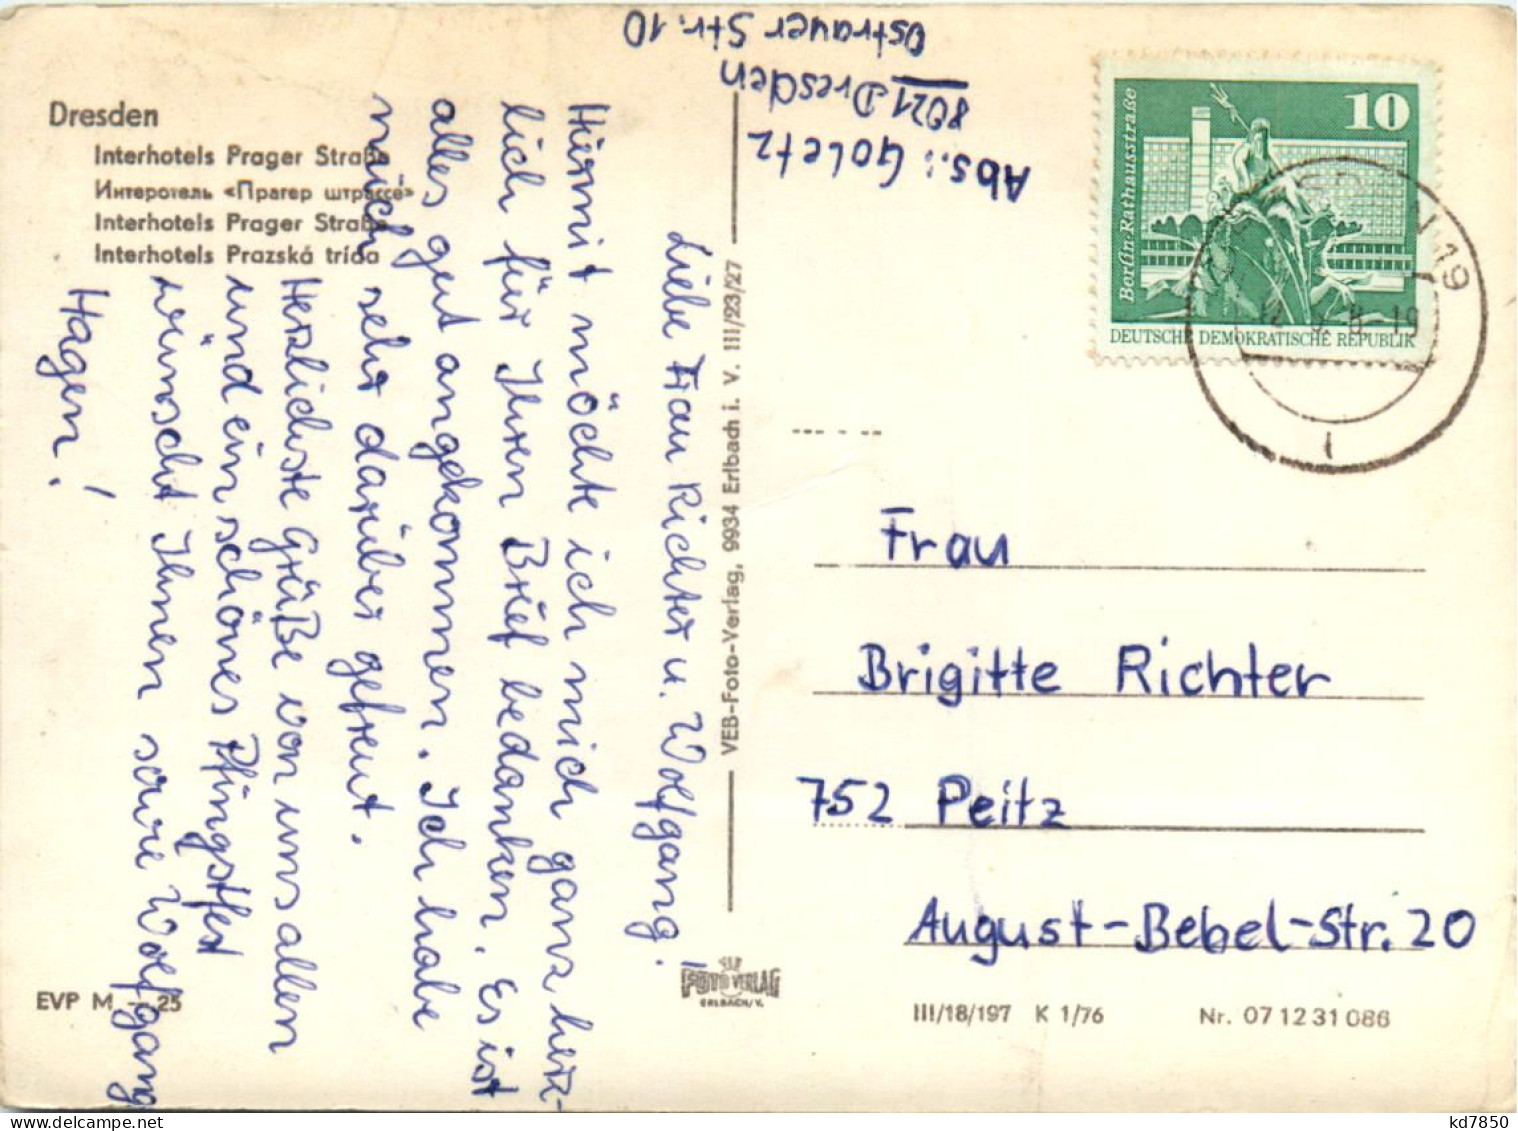 Dresden
Interhotels Prager Straße
Интеротель «Прагер штрассе»
Interhotels Prager Straße
Interhotels Prazská trída
Abs.: Goletz
8021 Dresden
Ostrauer Str. 10
Liebe Frau Richter u. Wolfgang!
Hiermit möchte ich mich ganz herz-
lich für Ihren Brief bedanken. Es ist
alles gut angekommen. Ich habe
mich sehr darüber gefreut.
Herzlichste Grüße von uns allen
und ein schönes Pfingstfest
wünscht Ihnen sowie Wolfgang
Hagen!
VEB-Foto-Verlag, 9934 Erlbach i. V. III/23/27
Berlin·Rathausstraße
10
DEUTSCHE DEMOKRATISCHE REPUBLIK
19
Frau
Brigitte Richter
752 Peitz
August-Bebel-Str. 20
EVP M 25
FOTO VERLAG
ERLBACH/V.
III/18/197 K 1/76 Nr. 07 12 31 086
kd7850